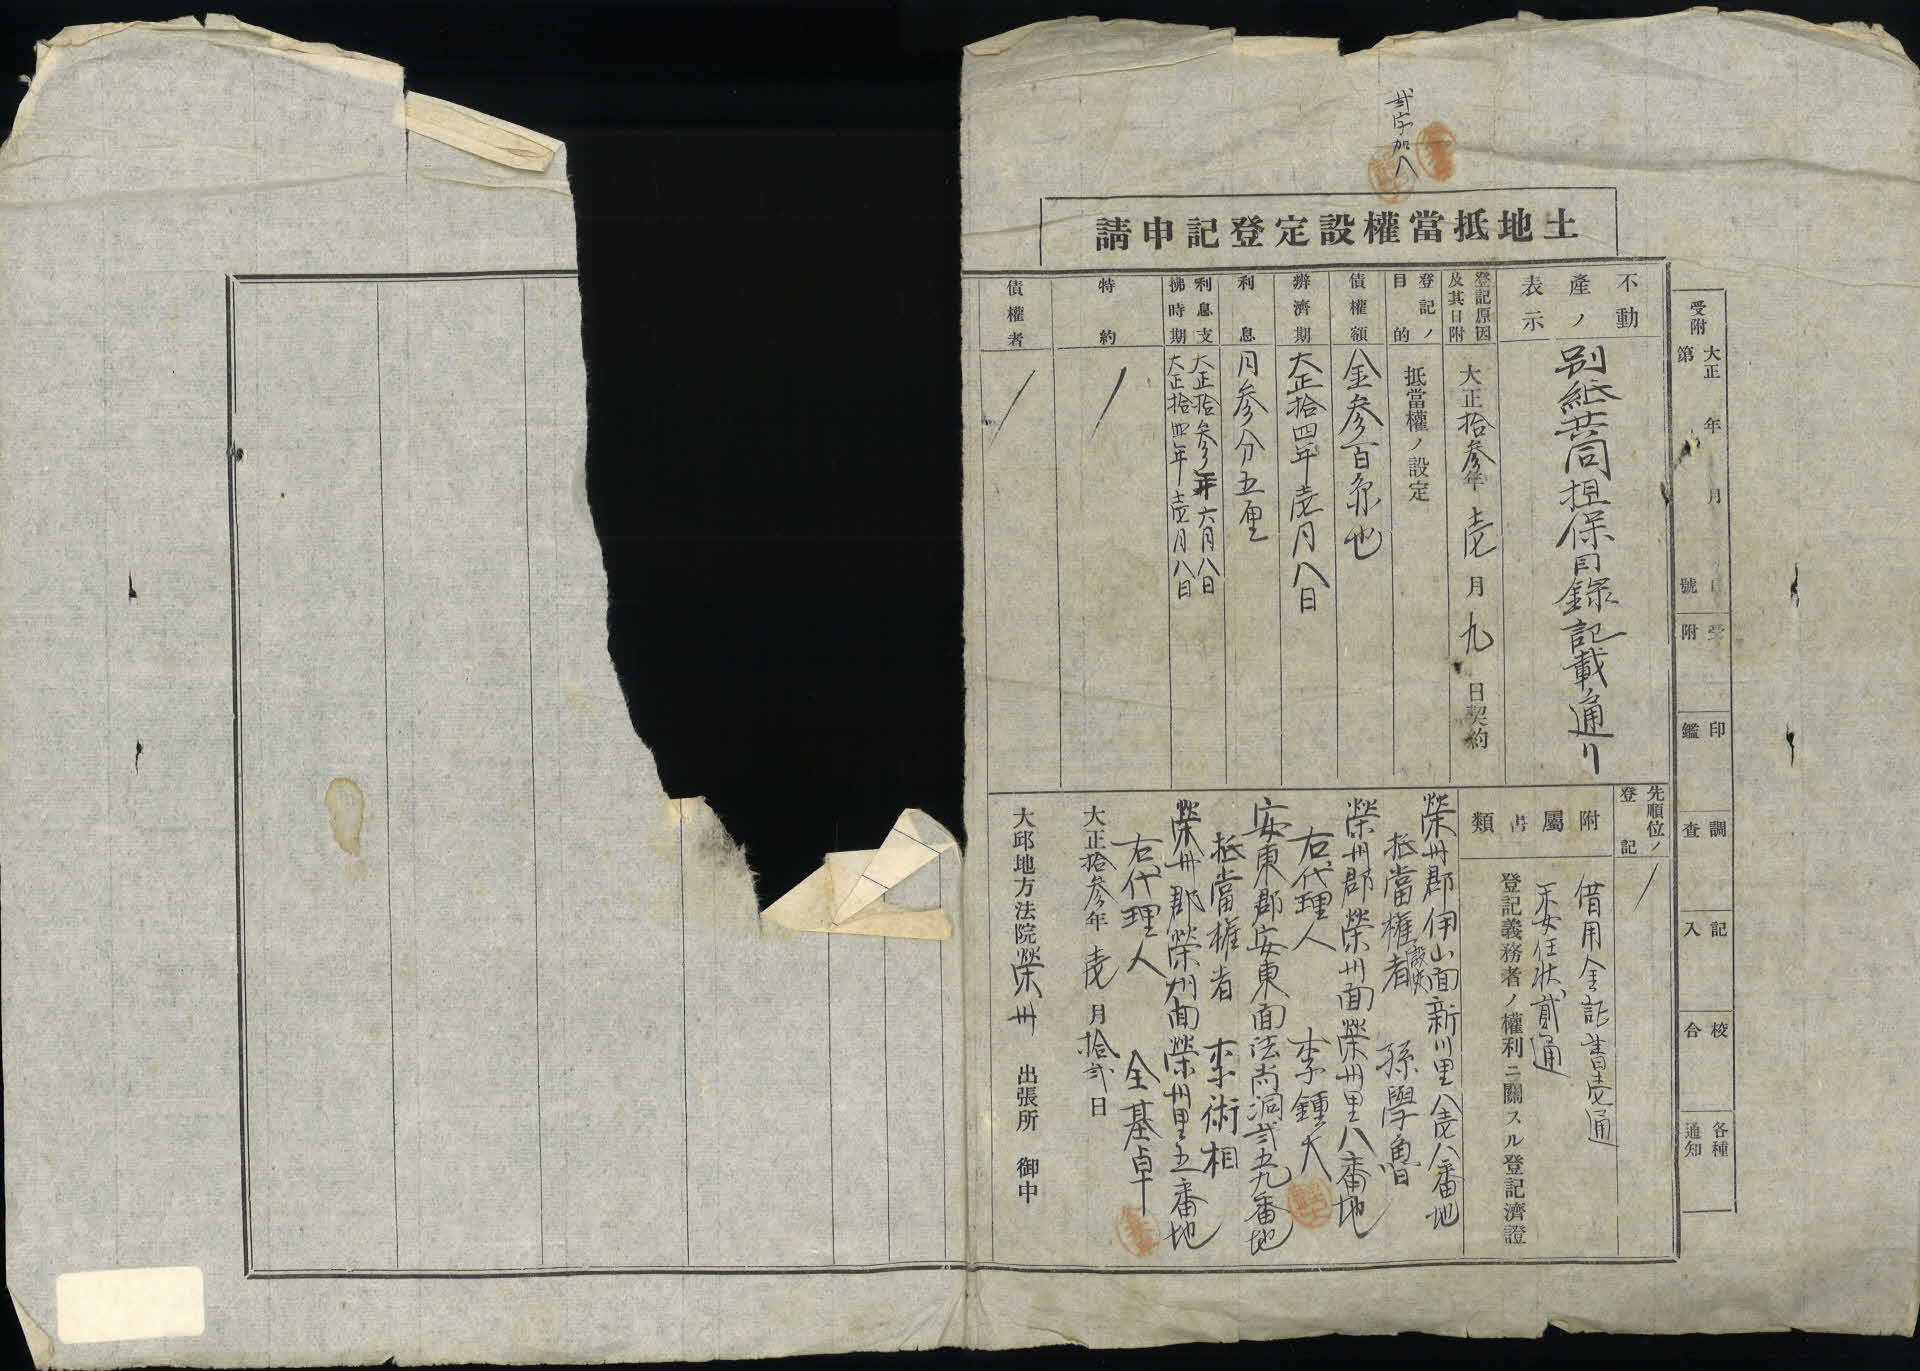 弐字加入
土地抵當權設定登記申請
受附 大正 年 月 日
第 號
受附
印鑑
調査
記入
校合
各種通知
不動産ノ表示
別紙共同担保目錄記載通リ
登記原因及其日附
大正拾参年壱月九日契約
登記ノ目的
抵當權ノ設定
債權額
金参百円也
辨濟期
大正拾四年壱月八日
利息
月参分五厘
利息支拂時期
大正拾参年六月八日
大正拾四年壱月八日
特約
債權者
先順位ノ登記
附屬書類
借用金証書壱通
委任状貳通
登記義務者ノ權利ニ關スル登記濟證
榮州郡伊山面新川里八壱八番地
抵當權設定者 孫學魯
榮州郡榮州面榮州里八番地
右代理人 李鍾大
安東郡安東面法尚洞弐五九番地
抵當權者 李術相
榮州郡榮州面榮州里五番地
右代理人 全基卓
大正拾参年壱月拾弐日
大邱地方法院榮州出張所 御中